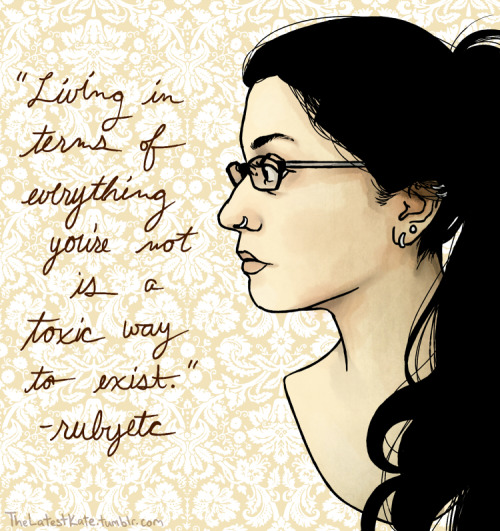 "Living in
terms of
everything
you're not
is a
toxic way
to exist."
-rubyetc
TheLatestKate.tumblr.com